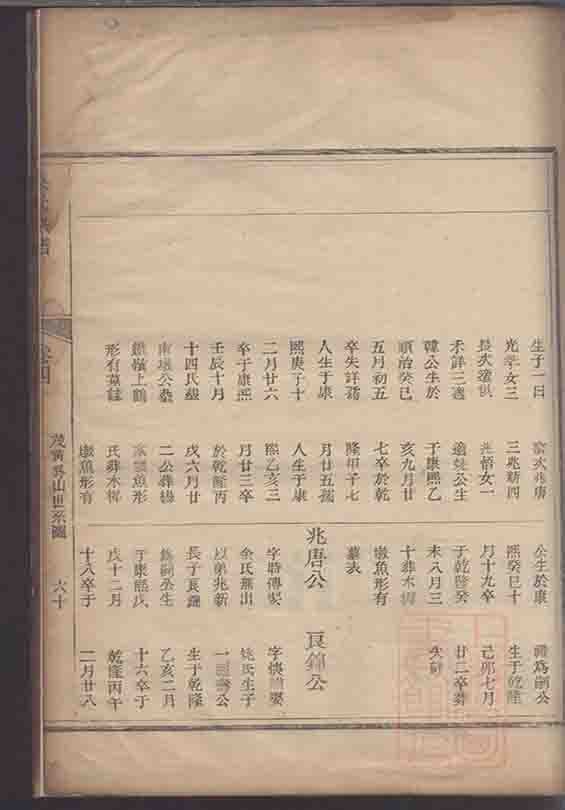 生于一日
光 女三
長次適俱
未詳三適
韓公生於
順治癸巳
五月初五
卒失詳孺
人生于康
熙庚子十
二月廿六
卒于康熙
壬辰十月
十四氏
南墩公葬
鐵嶺上鶴
形有墓誌
次兆唐
三兆新四
兆悟女一
適姚公生
于康熙乙
亥九月廿
七卒於乾
隆甲子七
月廿五孺
人生于康
熙乙亥三
月廿三卒
於乾隆丙
戌六月廿
二公葬
墩魚形
氏葬木梓
墩魚形有
公生於康
熙癸巳十
月十九卒
于乾隆癸
未八月三
十葬木梓
墩魚形有
墓表
兆唐公
字時傳娶
余氏無出
以弟兆新
長子良錦
為嗣公生
于康熙戊
戌十二月
十八卒于
禮為嗣公
生于乾隆
己卯七月
廿二卒葬
失詳
良錦公
字快 娶
姚氏生子
一 公
生于乾隆
乙亥二月
十六卒于
乾隆丙午
二月廿八
卷四
茂黃吳山世系圖
六十